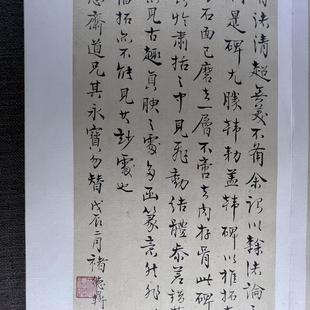 法清超美不備余謂以隸法論
是碑尤勝韓勅蓋韓碑以椎拓
石面已磨去一層不啻去肉存骨此碑
於肅括之中見飛動結體參差
見古趣真腴之處多函篆意
拓亦不能見其妙處也
齋道兄其永寶勿替戊辰二月褚德彝